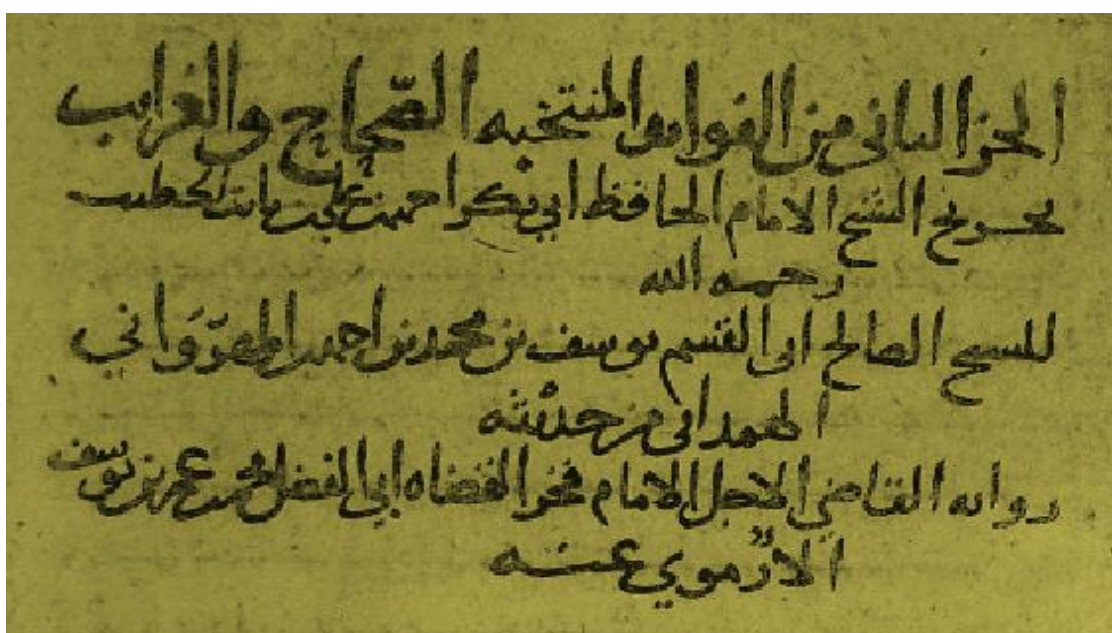 الجزا الثاني من الفوايد المنتخبه الصحاح والغرايب
تخريج الشيخ الامام الحافظ ابي بكر احمد بن علي بن ثابت الخطيب
رحمه الله
للشيخ الصالح ابي القسم يوسف بن محمد بن احمد المهرواني
الهمداني من حديثه
روايه القاضي الاجل الامام فخر القضاه ابي الفضل محمد بن عمر بن يوسف
الارموي عنه